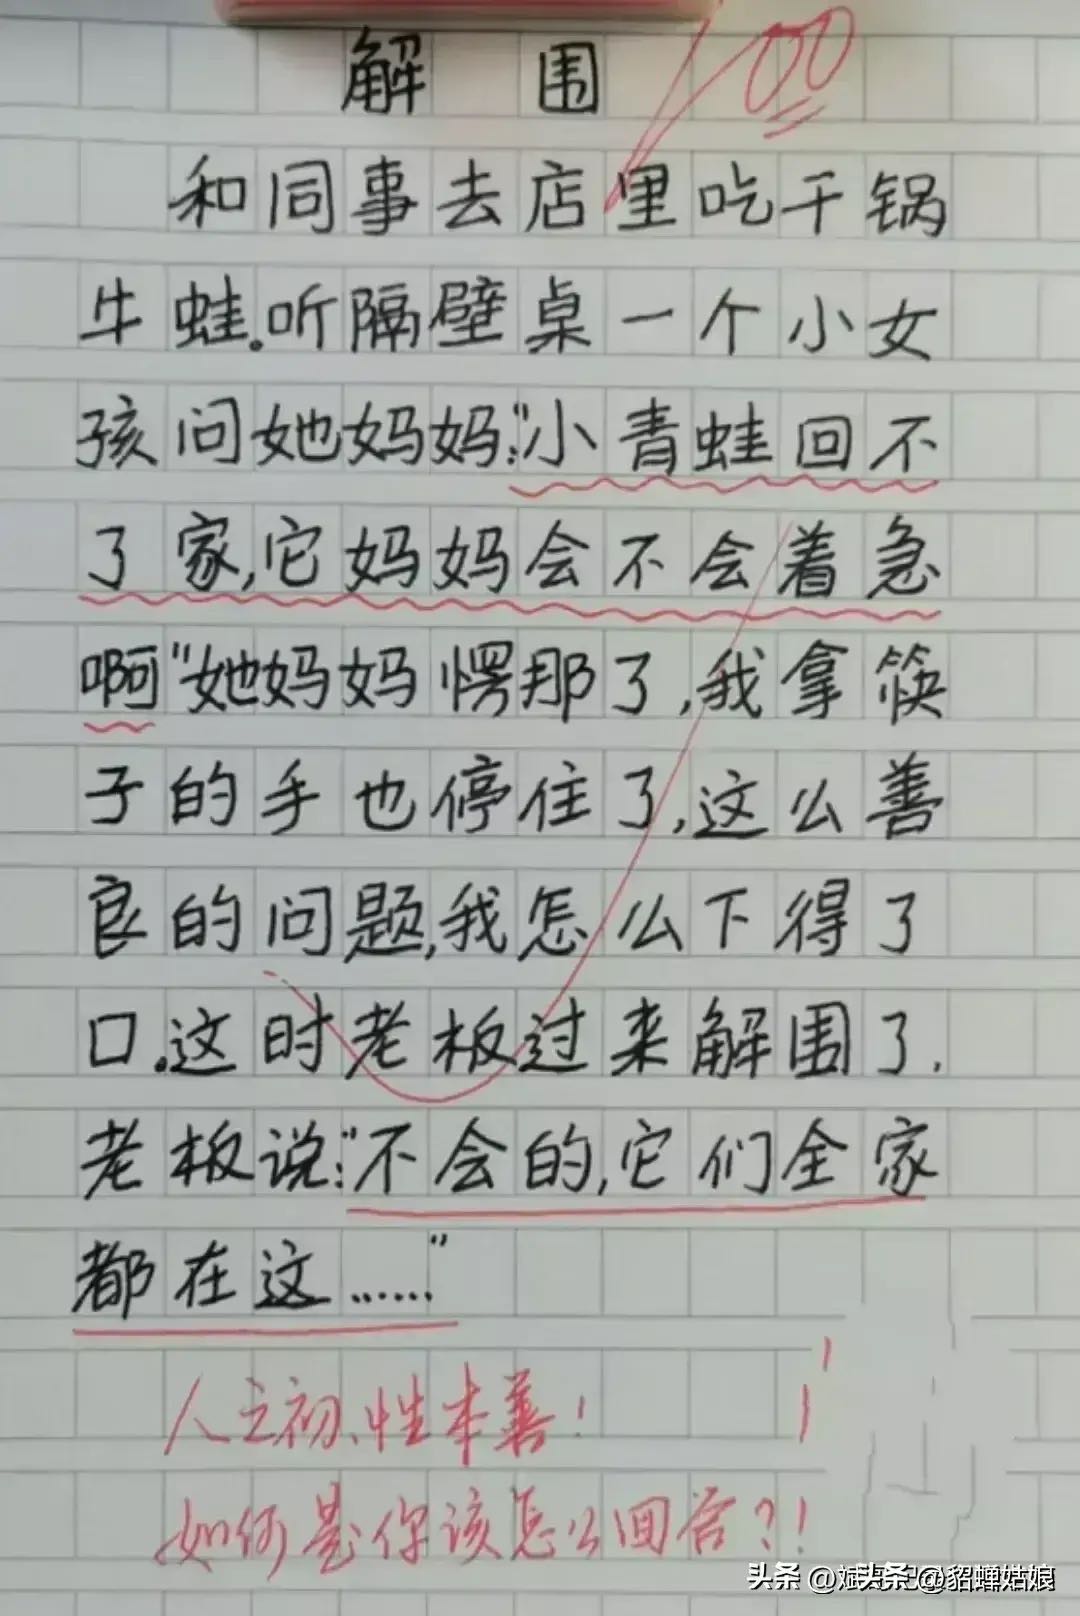 解围
100
和同事去店里吃干锅
牛蛙。听隔壁桌一个小女
孩问她妈妈:"小青蛙回不
了家,它妈妈会不会着急
啊"她妈妈愣那了,我拿筷
子的手也停住了,这么善
良的问题,我怎么下得了
口.这时老板过来解围了.
老板说:"不会的,它们全家
都在这……"
人之初、性本善!
如何是你该怎么回答?!
头条 @貂蝉姑娘